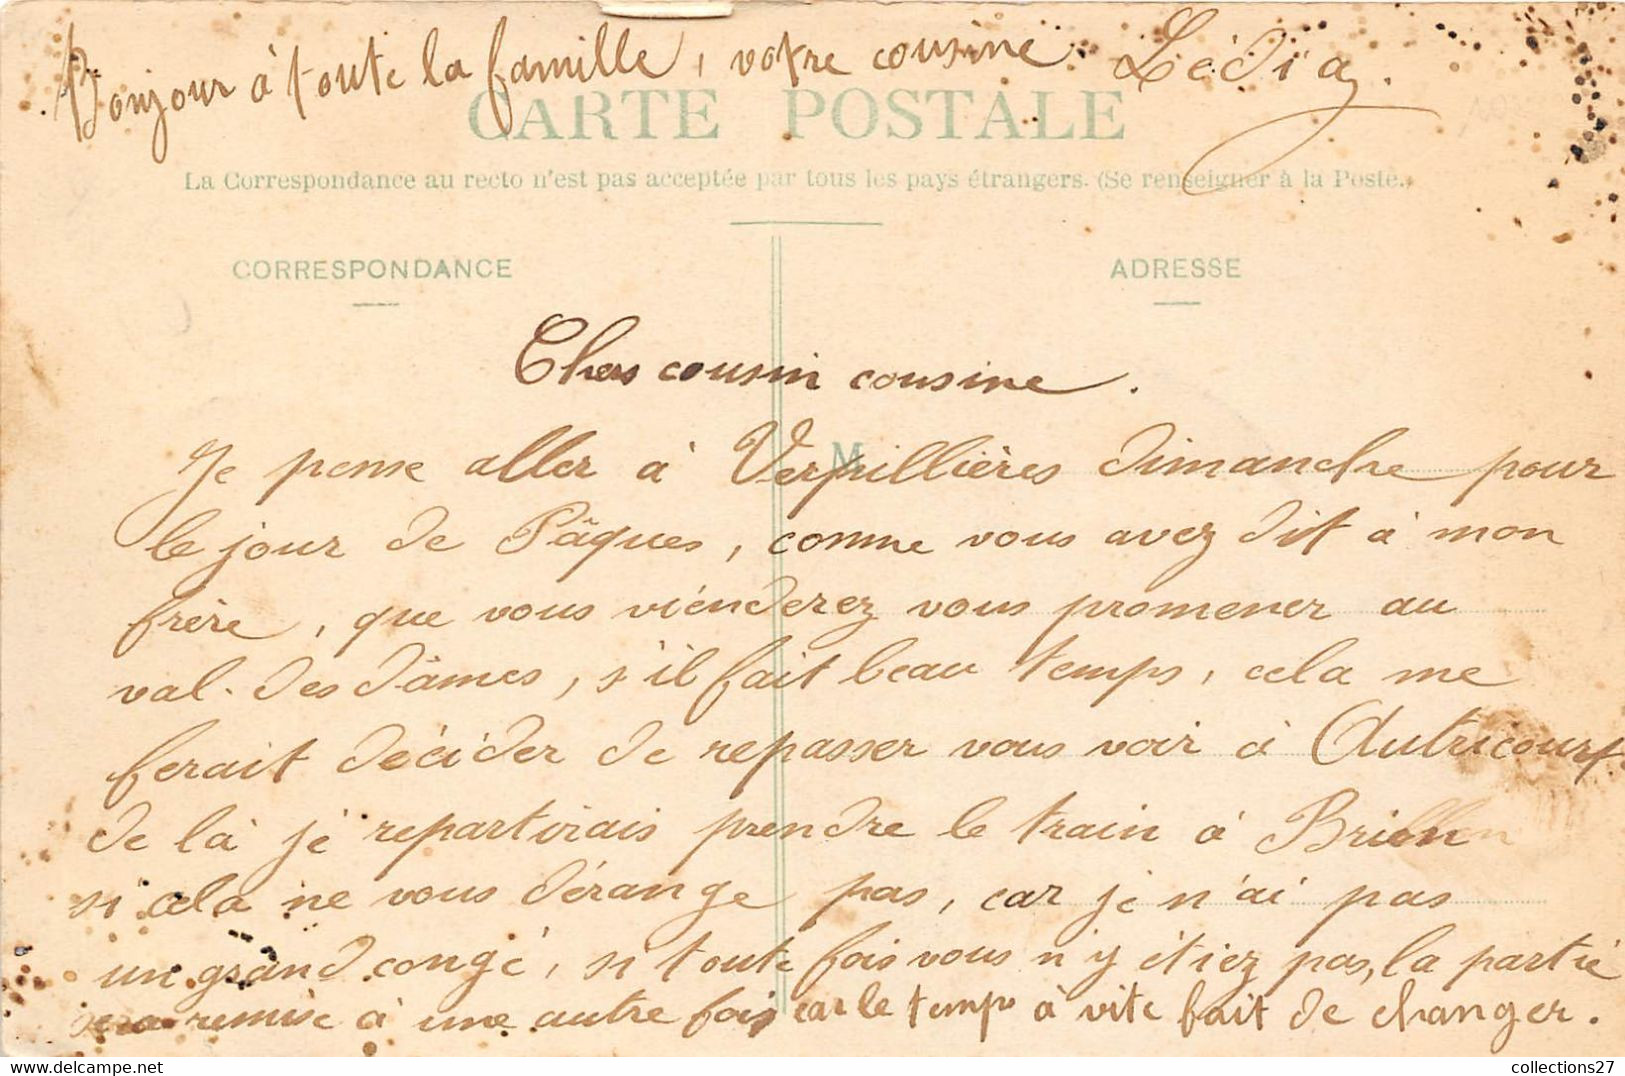 Bonjour à toute la famille, votre cousine Lédia.
CARTE POSTALE
La Correspondance au recto n'est pas acceptée par tous les pays étrangers. (Se renseigner à la Poste.)
CORRESPONDANCE
ADRESSE
Chers cousin cousine.
M
Je pense aller à Verpillières dimanche pour
le jour de Pâques, comme vous avez dit à mon
frère, que vous viénderez vous promener au
val-des dâmes, s'il fait beau temps, cela me
ferait décider de repasser vous voir à Autricourt
de là je repartirais prendre le train à
si cela ne vous dérange pas, car je n'ai pas
un grand congé, si toute fois vous n'y étiez pas, la partie
sera remise à une autre fois car le temps à vite fait de changer.
collections27